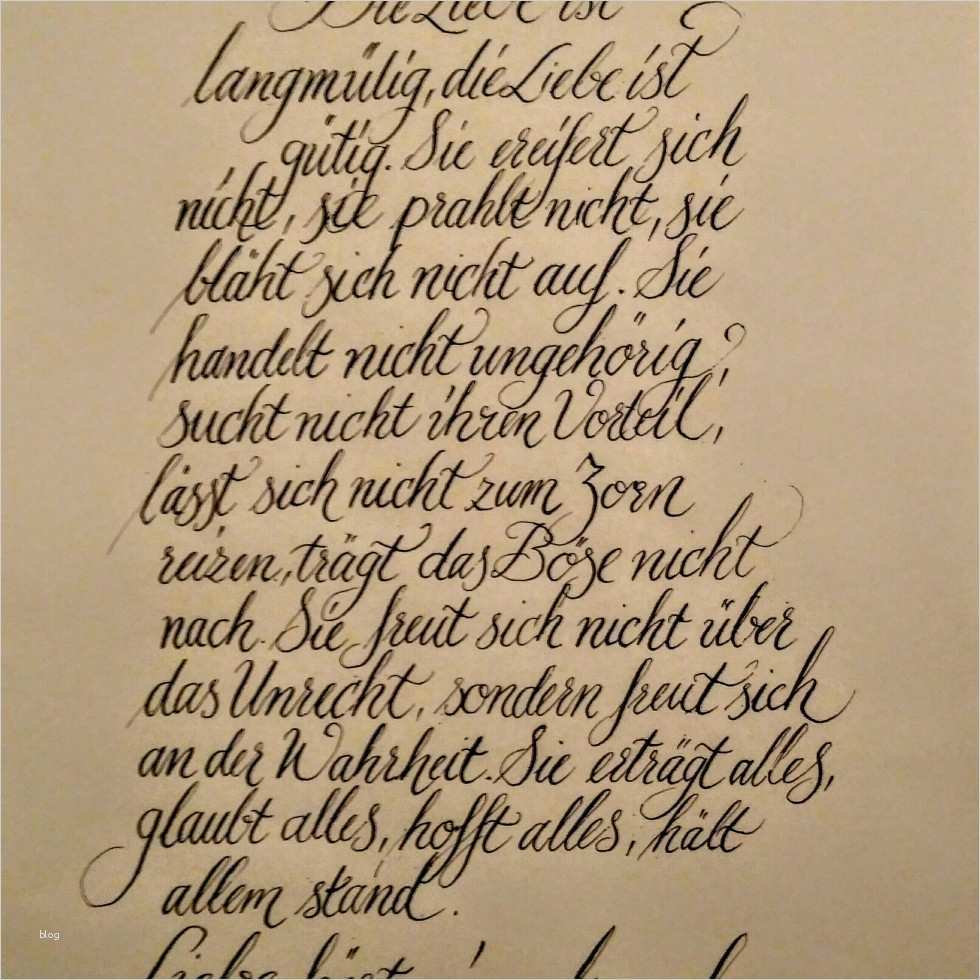 Die Liebe ist
langmütig, die Liebe ist
gütig. Sie ereifert sich
nicht, sie prahlt nicht, sie
bläht sich nicht auf. Sie
handelt nicht ungehörig,
sucht nicht ihren Vorteil,
lässt sich nicht zum Zorn
reizen, trägt das Böse nicht
nach. Sie freut sich nicht über
das Unrecht, sondern freut sich
an der Wahrheit. Sie erträgt alles,
glaubt alles, hofft alles, hält
allem stand.
blog